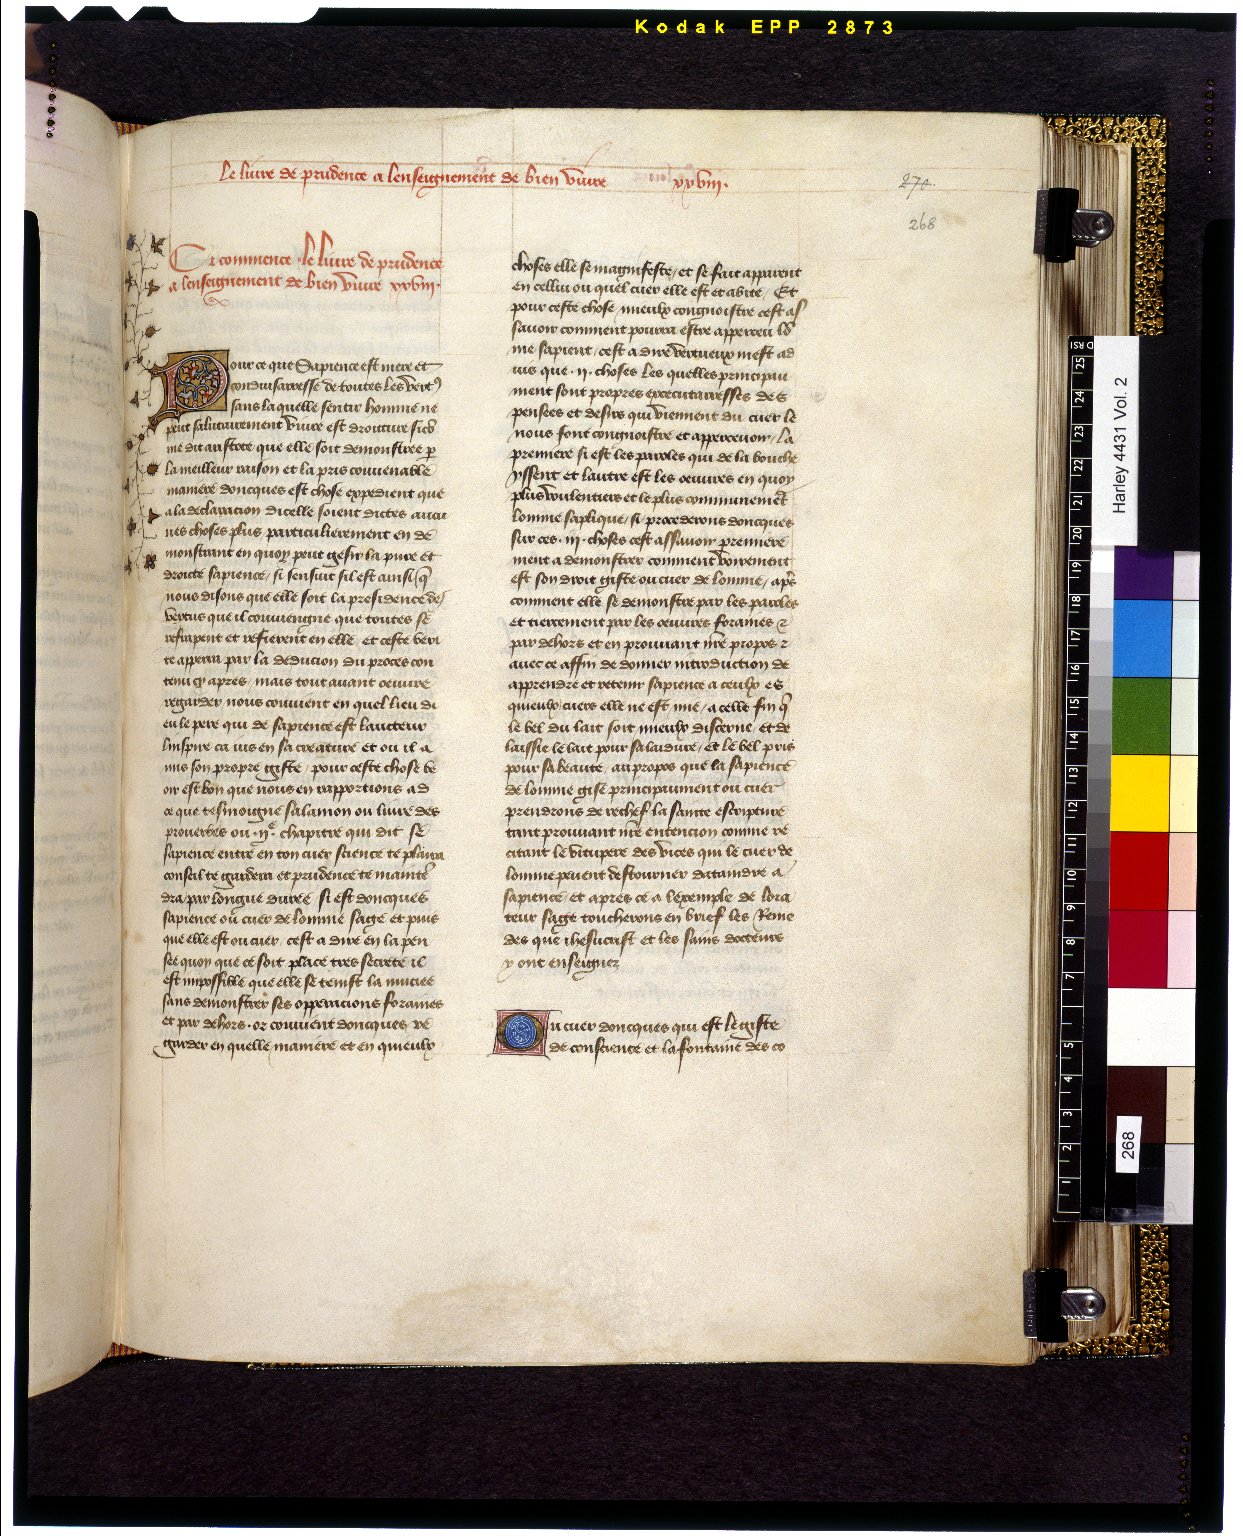 Kodak EPP 2873
Le livre de prudence a lenseignement de bien vivre xxviii.
270.
268
Cy commence le livre de prudence
a lenseignement de bien vivre xxviii.
Pour ce que Sapience est mere et
conduisarresse de toutes les vert9
sans laquelle sentir homme ne
peut salutairement vivre est droiture sicõ
me dit aristote que elle soit demonstree p
la meilleur raison et la plus convenable
maniere doncques est chose expedient que
a la declaracion dicelle soient dictes aucu
nes choses plus particulierement en de
monstrant en quoy peut gesir la pure et
droicte sapience / si sensuit sil est ainsi q
nous disons que elle soit la presidence des
vertus que il couviengne que toutes se
refrapent et refierent en elle et ceste veri
te apperra par la deducion du proces con
tenu cy apres / mais tout avant oeuvre
regarder nous couvient en quel lieu di
eu le pere qui de sapience est laucteur
linspire ca jus en sa creature et ou il a
mis son propre giste / pour ceste chose ve
oir est bon que nous en rapportions ad
ce que tesmoigne salamon ou livre des
proverbes ou .ije. chapitre qui dit se
sapience entre en ton cuer science te plaira
conseil te gardera et prudence te maintē
dra par longue duree si est doncques
sapience ou cuer de lomme sage et puis
que elle est ou cuer / cest a dire en la pen
see quoy que ce soit place tres secrete il
est impossible que elle se tenist la muciee
sans demonstrer ses opperacions foraines
et par dehors . or couvient doncques re
garder en quelle maniere et en quieulx
choses elle se magnifeste / et se fait apparent
en cellui ou quel cuer elle est et abite / Et
pour ceste chose mieulx congnoistre cest as
savoir comment pourra estre apperceu lō
me sapient / cest a dire vertueux mest ad
vis que .ij. choses les quelles principau
ment sont propres executarresses des
pensees et desirs qui viennent du cuer le
nous font congnoistre et appercevoir / la
premiere si est les paroles qui de la bouche
yssent et lautre est les oeuvres en quoy
plus voulentiers et le plus communemēt
lomme saplique / si procederons doncques
sur ces .iij. choses cest assavoir premiere
ment a demonstrer comment voirement
est son droit giste ou cuer de lomme / apš
comment elle se demonstre par les paroles
et tiercement par les oeuvres foraines z
par dehors et en prouvant nr̃e propos z
avec ce affin de donner introduction de
apprendre et retenir sapience a ceulx es
quieulx cuers elle ne est mie / a celle fin q̃
le bel du lait soit mieulx discerne et de
laissie le lait pour sa laidure / et le bel pris
pour sa beaute / au propos que la sapience
de lomme gise principaument ou cuer
prendrons de rechef la sainte escripture
tant prouvant nr̃e entencion comme re
citant le vitupere des vices qui le cuer de
lomme peuent destourner dataindre a
sapience / et apres ce a lexemple de lora
teur sage toucherons en brief les Reme
des que ihesucrist et les sains docteurs
y ont enseignez
Du cuer doncques qui est le giste
de conscience et la fontaine des co
Harley 4431 Vol. 2
268
25
24
23
22
21
20
19
18
17
16
15
14
13
12
11
10
9
8
7
5
4
3
2
1